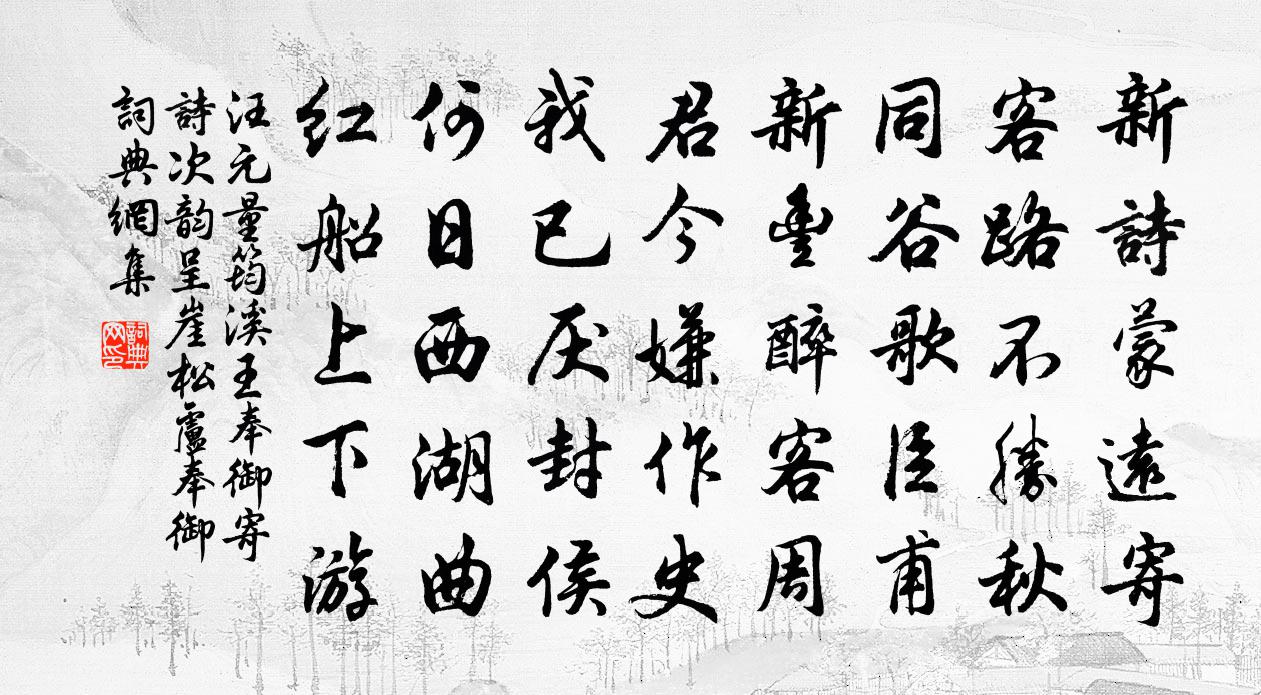 新詩蒙遠寄
客路不勝秋
同谷歌臣甫
新豊醉客周
君今嫌作史
我已厌封侯
何日西湖曲
红船上下游
汪元量筠溪王奉御寄
詩次韵呈崖松廬奉御
詞典網集
詞典网印